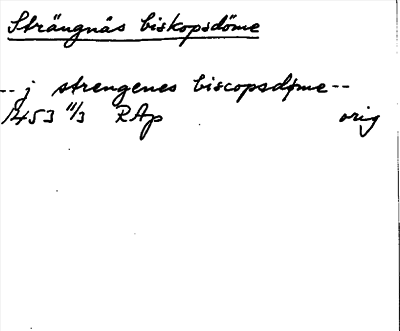 Strängnäs biskopsdöme
-- j strengenes biscopsdøme --
1453 11/3 RAp orig